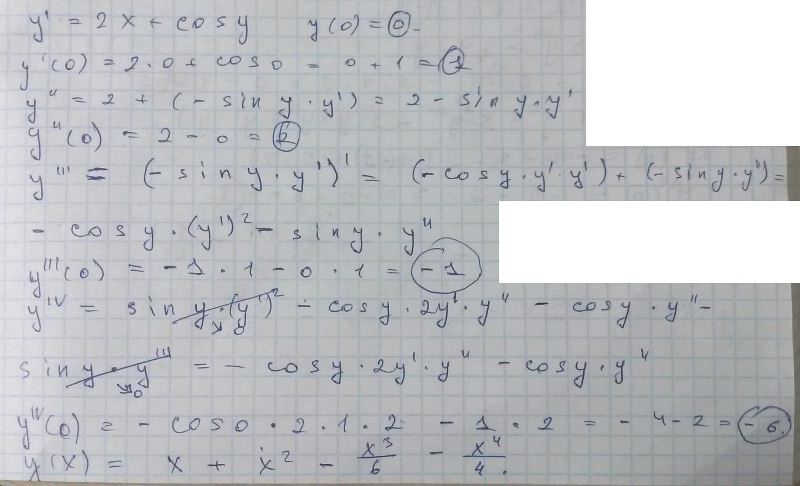 y' = 2x + cosy    y(0) = 0.
y'(0) = 2·0 + cos0 = 0 + 1 = 1
y'' = 2 + (- sin y · y') = 2 - sin y · y'
y''(0) = 2 - 0 = 2
y''' = (- sin y · y')' = (- cos y · y' · y') + (- sin y · y'') =
- cos y · (y')² - sin y · y''
y'''(0) = -1 · 1 - 0 · 1 = -1
y^IV = sin y · (y')² - cos y · 2y' · y'' - cos y · y'' -
sin y · y''' = - cos y · 2y' · y'' - cos y · y''
y^IV(0) = - cos0 · 2 · 1 · 2 - 1 · 2 = - 4 - 2 = - 6.
y(x) = x + x² - x³/6 - x⁴/4.